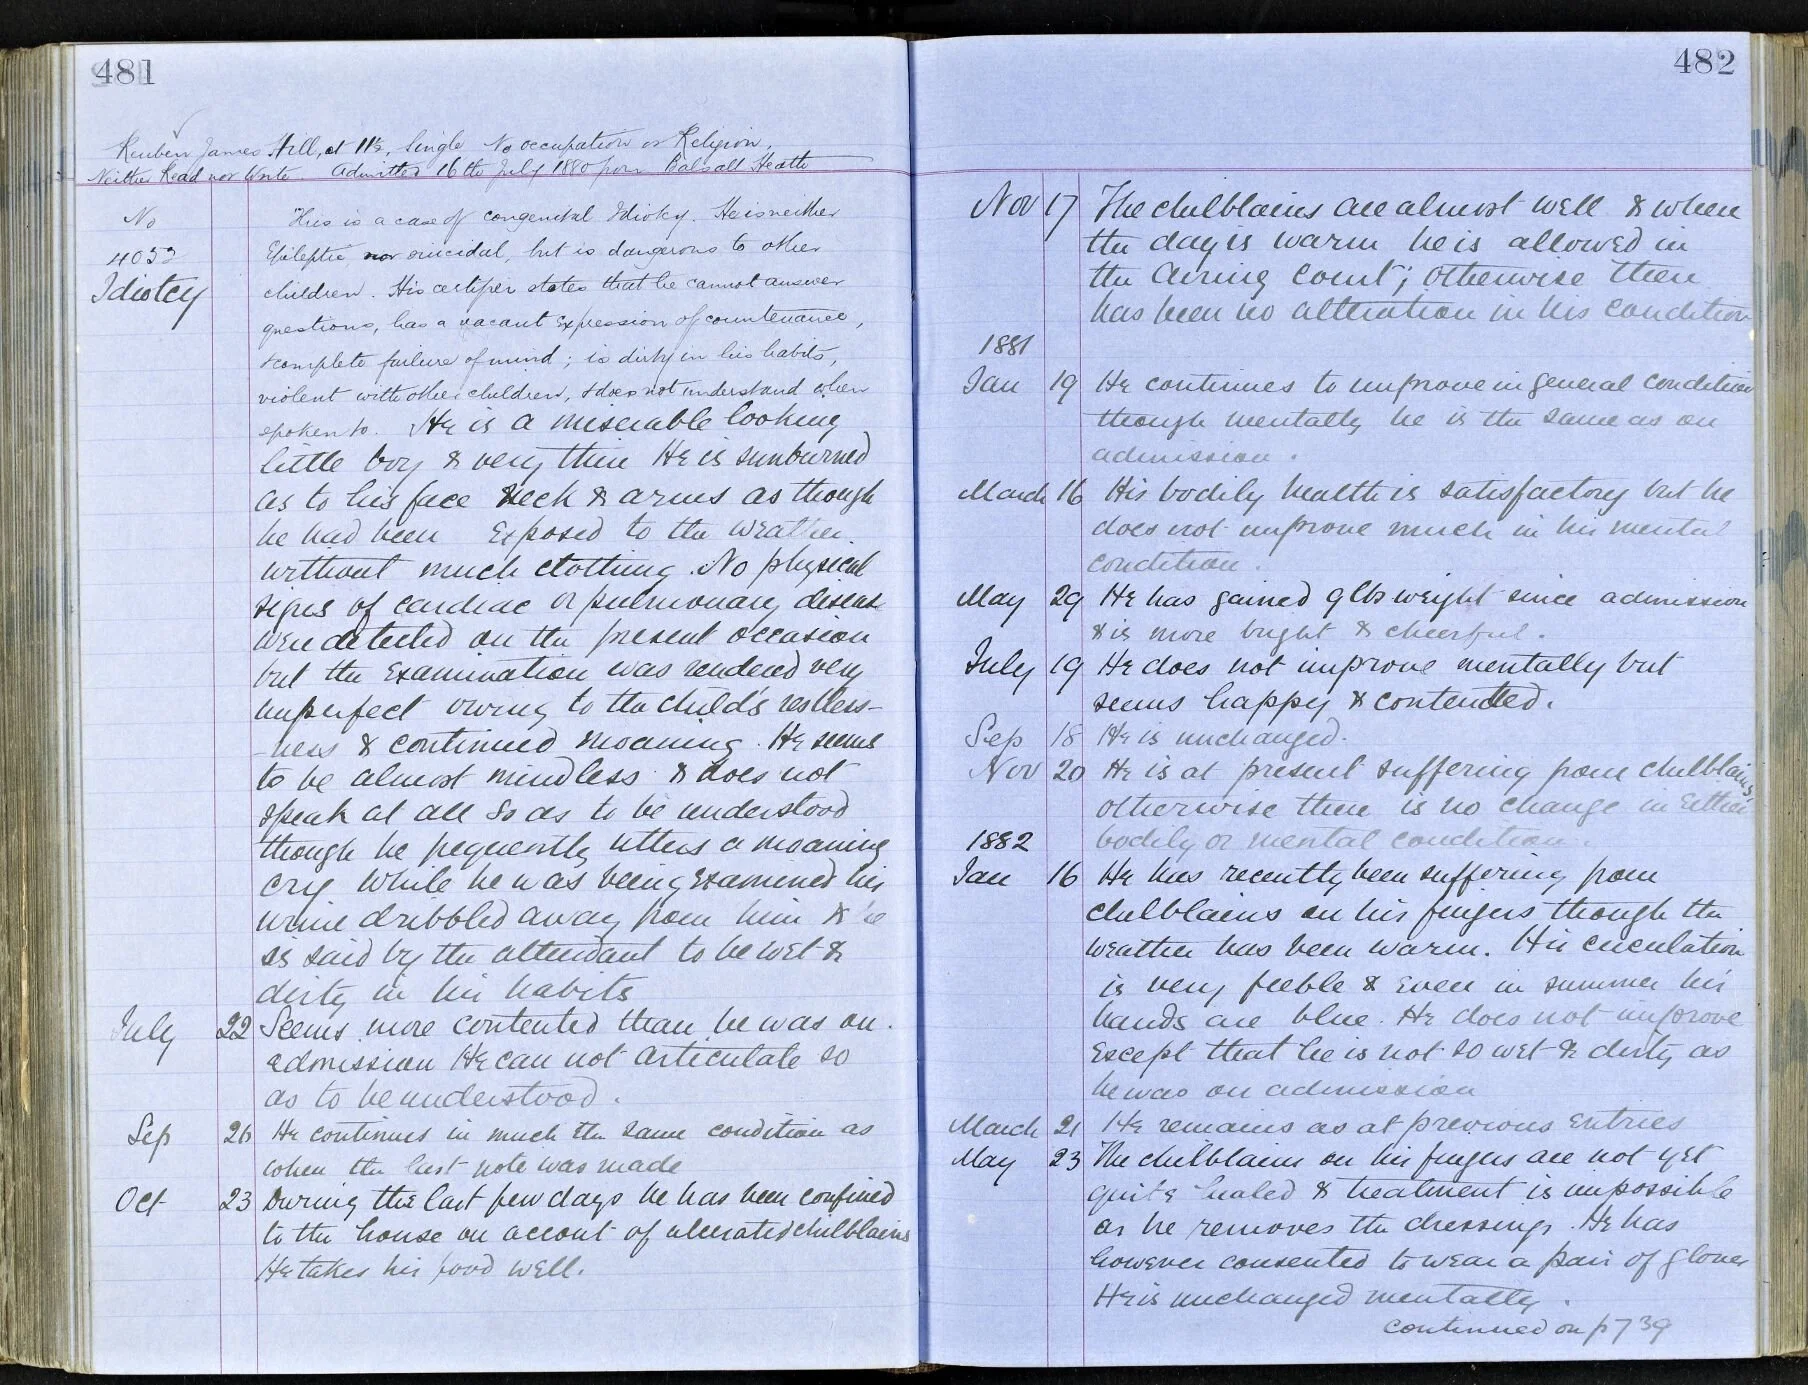 481
Reuben James Hill, æt 11½, Single No occupation or Religion,
Neither Read nor Write. Admitted 16th July 1880 from Balsall Heath
No
4053
Idiotcy
This is a case of congenital Idiotcy. He is neither
Epileptic nor suicidal, but is dangerous to other
children. His certifier states that he cannot answer
questions, has a vacant expression of countenance,
& complete failure of mind; is dirty in his habits,
violent with other children, & does not understand when
spoken to. He is a miserable looking
little boy & very thin He is sunburned
as to his face neck & arms as though
he had been exposed to the weather
without much clothing. No physical
signs of cardiac or pulmonary disease
were detected on the present occasion
but the examination was rendered very
imperfect owing to the child's restless-
ness & continued moaning. He seems
to be almost mindless & does not
speak at all so as to be understood
though he frequently utters a moaning
cry While he was being examined his
urine dribbled away from him & he
is said by the attendant to be wet &
dirty in his habits
July 22 Seems more contented than he was on
admission He can not articulate so
as to be understood.
Sep 26 He continues in much the same condition as
when the last note was made
Oct 23 During the last few days he has been confined
to the house on account of ulcerated chilblains
He takes his food well.
482
Nov 17 The chilblains are almost well & when
the day is warm he is allowed in
the Airing Court; otherwise there
has been no alteration in his condition
1881
Jan 19 He continues to improve in general condition
though mentally he is the same as on
admission.
March 16 His bodily health is satisfactory but he
does not improve much in his mental
condition.
May 29 He has gained 9 lbs weight since admission
& is more bright & cheerful.
July 19 He does not improve mentally but
seems happy & contented.
Sep 18 He is unchanged.
Nov 20 He is at present suffering from chilblains,
otherwise there is no change in either
bodily or mental condition.
1882
Jan 16 He has recently been suffering from
chilblains on his fingers though the
weather has been warm. His circulation
is very feeble & even in summer his
hands are blue. He does not improve
except that he is not so wet & dirty as
he was on admission
March 21 He remains as at previous entries
May 23 The chilblains on his fingers are not yet
quite healed & treatment is impossible
as he removes the dressings. He has
however consented to wear a pair of gloves
He is unchanged mentally.
continued on p 739